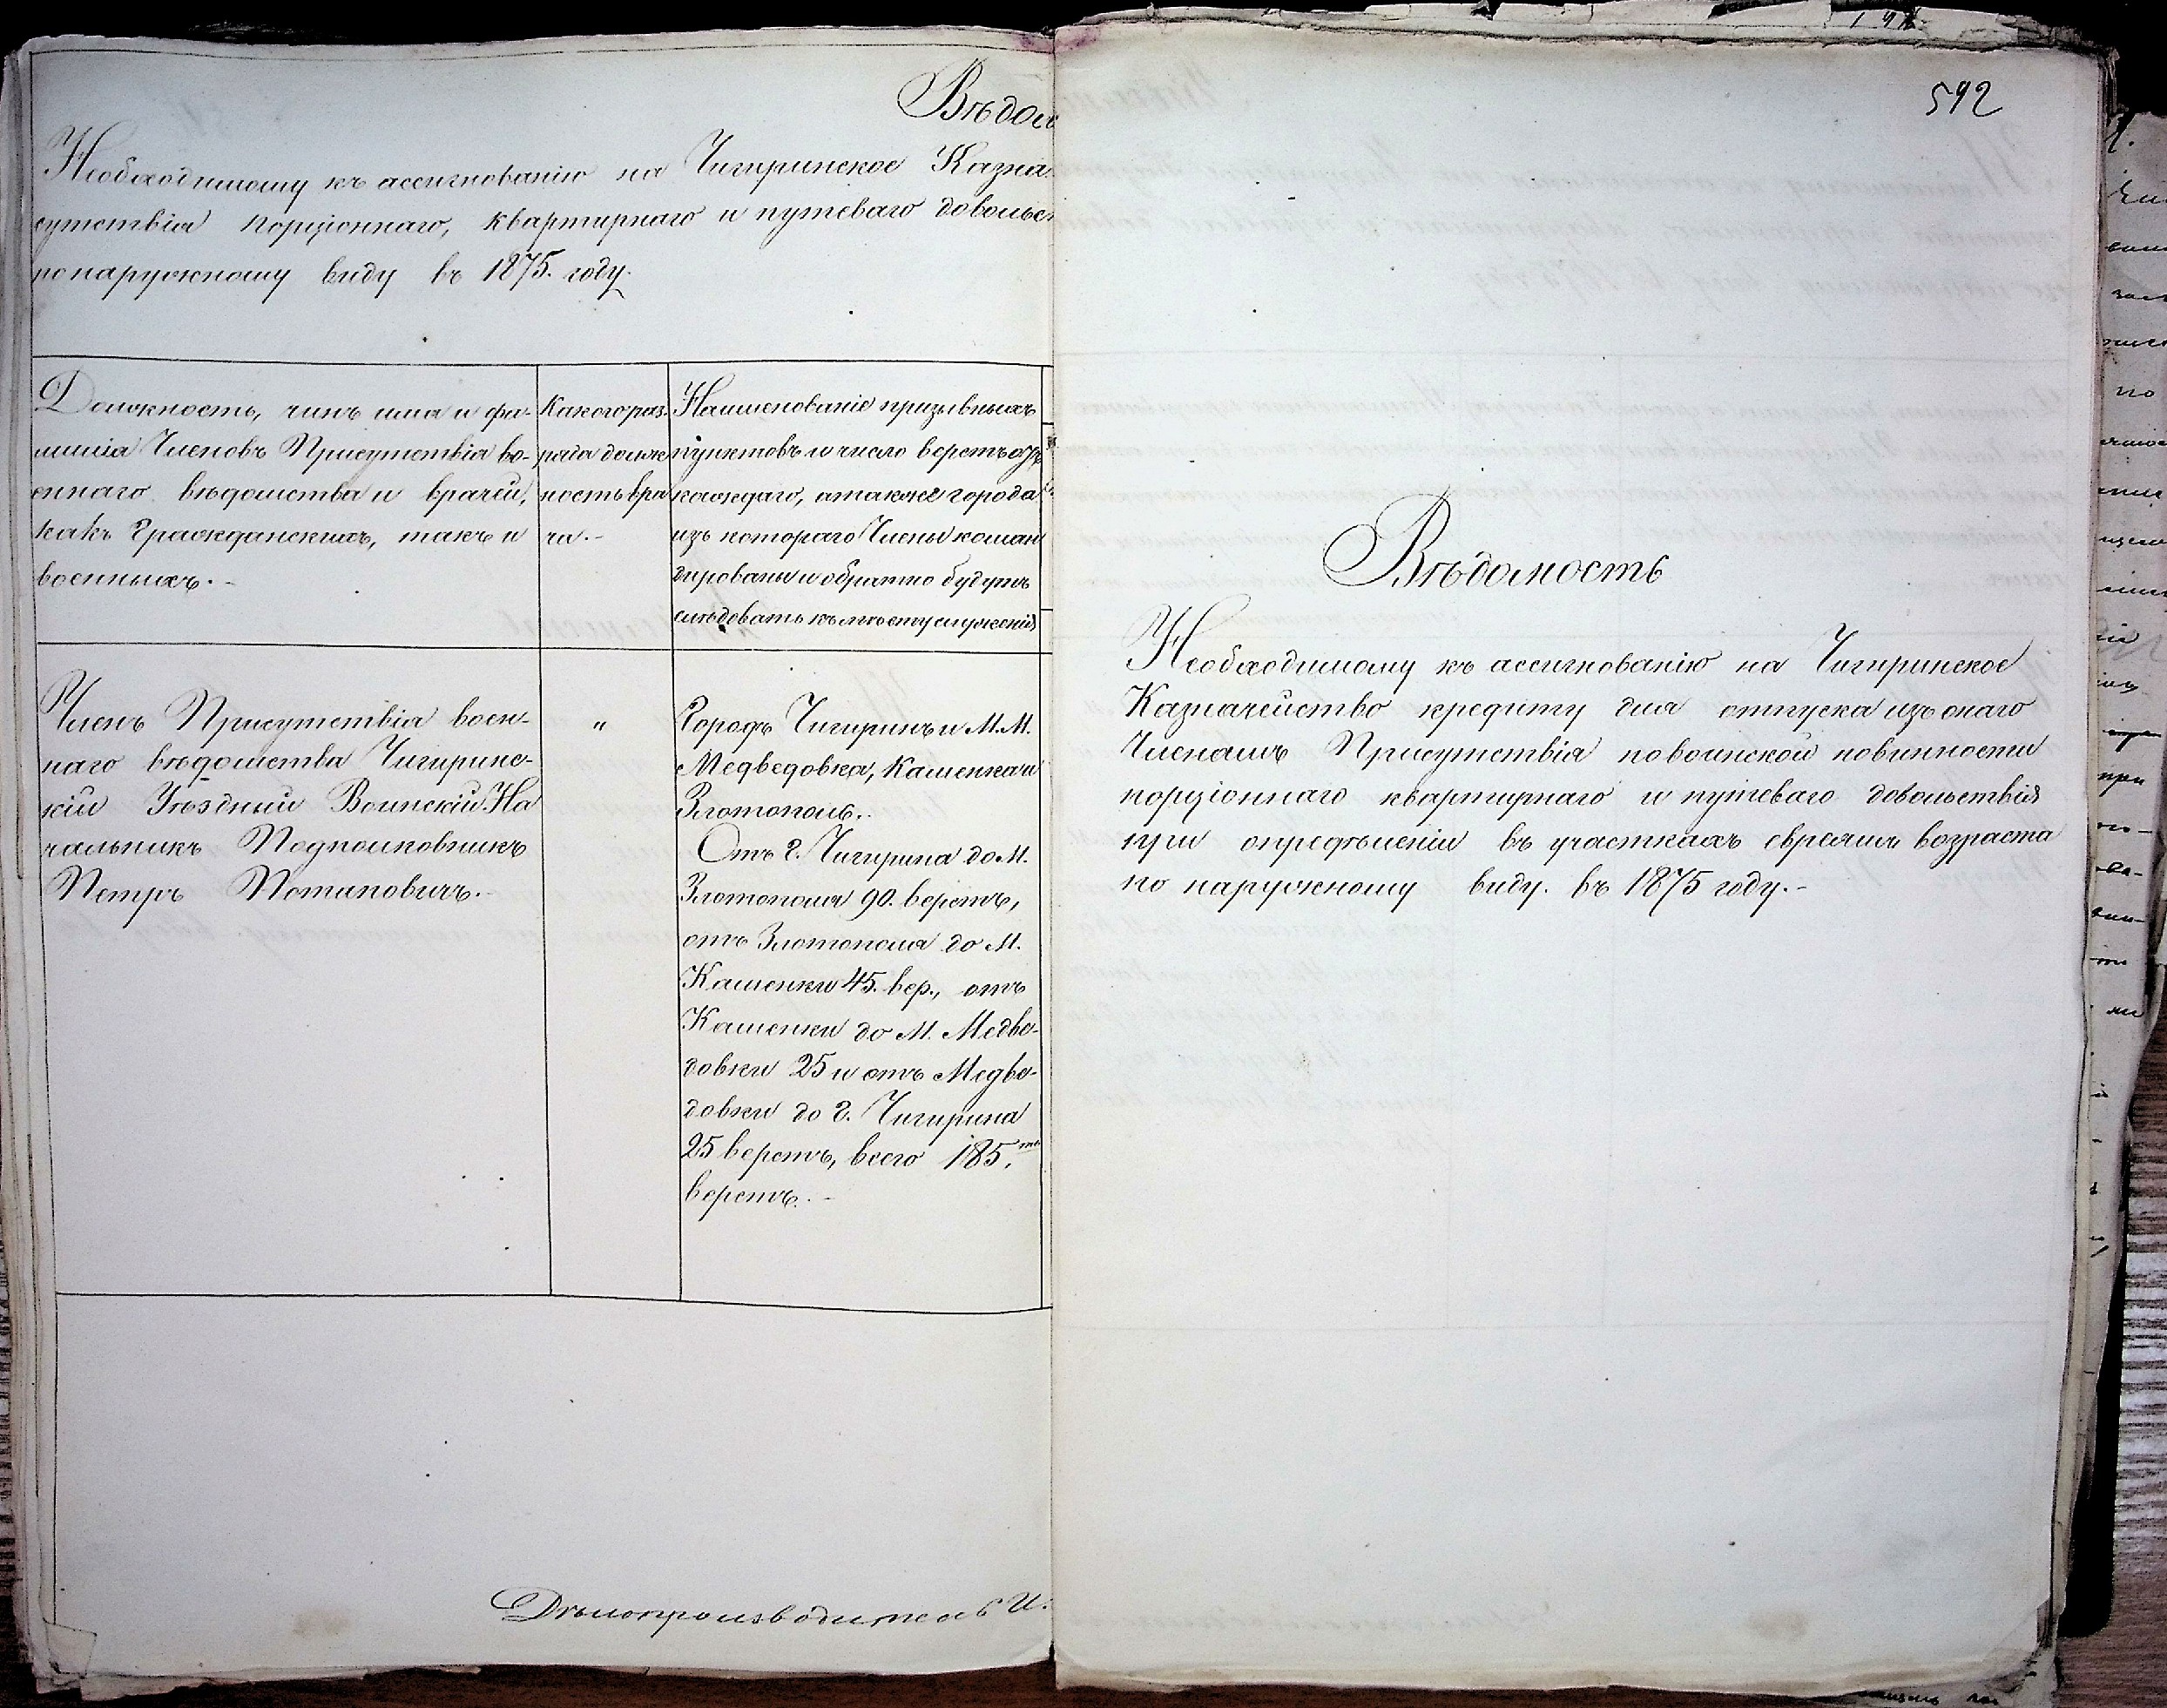 Вѣдом
Необходимому къ ассигнованію на Чигиринское Казна
сутствія порціоннаго, квартирнаго и путеваго довольст
по наружному виду въ 1875. году.
Должность, чинъ имя и фа-
милія Членовъ Присутствія во-
еннаго вѣдомства и врачей,
какъ Гражданскихъ, такъ и
военныхъ.-
Какого раз-
ряда долж
ность вра
ча.-
Наименованіе призывныхъ
пунктовъ и число верстъ отъ
каждаго, а также города
изъ котораго Члены коман
дированы и обратно будутъ
слѣдовать къ мѣсту служенія
Членъ Присутствія воен-
наго вѣдомства Чигиринс-
кій Уѣздный Воинскій На
чальникъ Подполковникъ
Петръ Потаповичъ.-
"
Городъ Чигиринъ и М.М.
Медведовка, Каменка и
Златополь.
Отъ г. Чигирина до М.
Златополя 90. верстъ,
отъ Златополя до М.
Каменки 45. вер., отъ
Каменки до М. Медве-
довки 25 и отъ Медве-
довки до г. Чигирина
25 верстъ, всего 185.ть
верстъ.-
Дѣлопроизводитель И.
592
Вѣдомость
Необходимому къ ассигнованію на Чигиринское
Казначейство кредиту для отпуска изъ онаго
Членамъ Присутствія по воинской повинности
порціоннаго квартирнаго и путеваго довольствія
при опредѣленіи въ участкахъ евреямъ возраста
по наружному виду. въ 1875 году.-